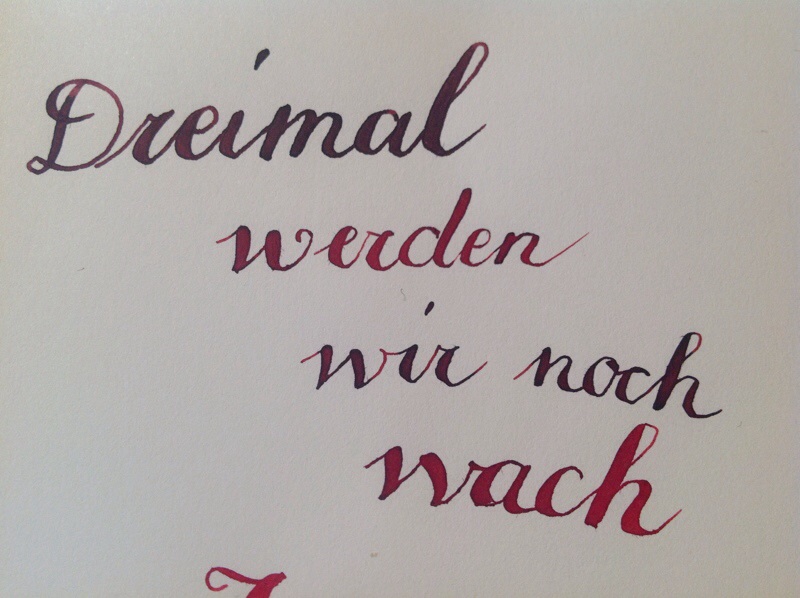 Dreimal
werden
wir noch
wach